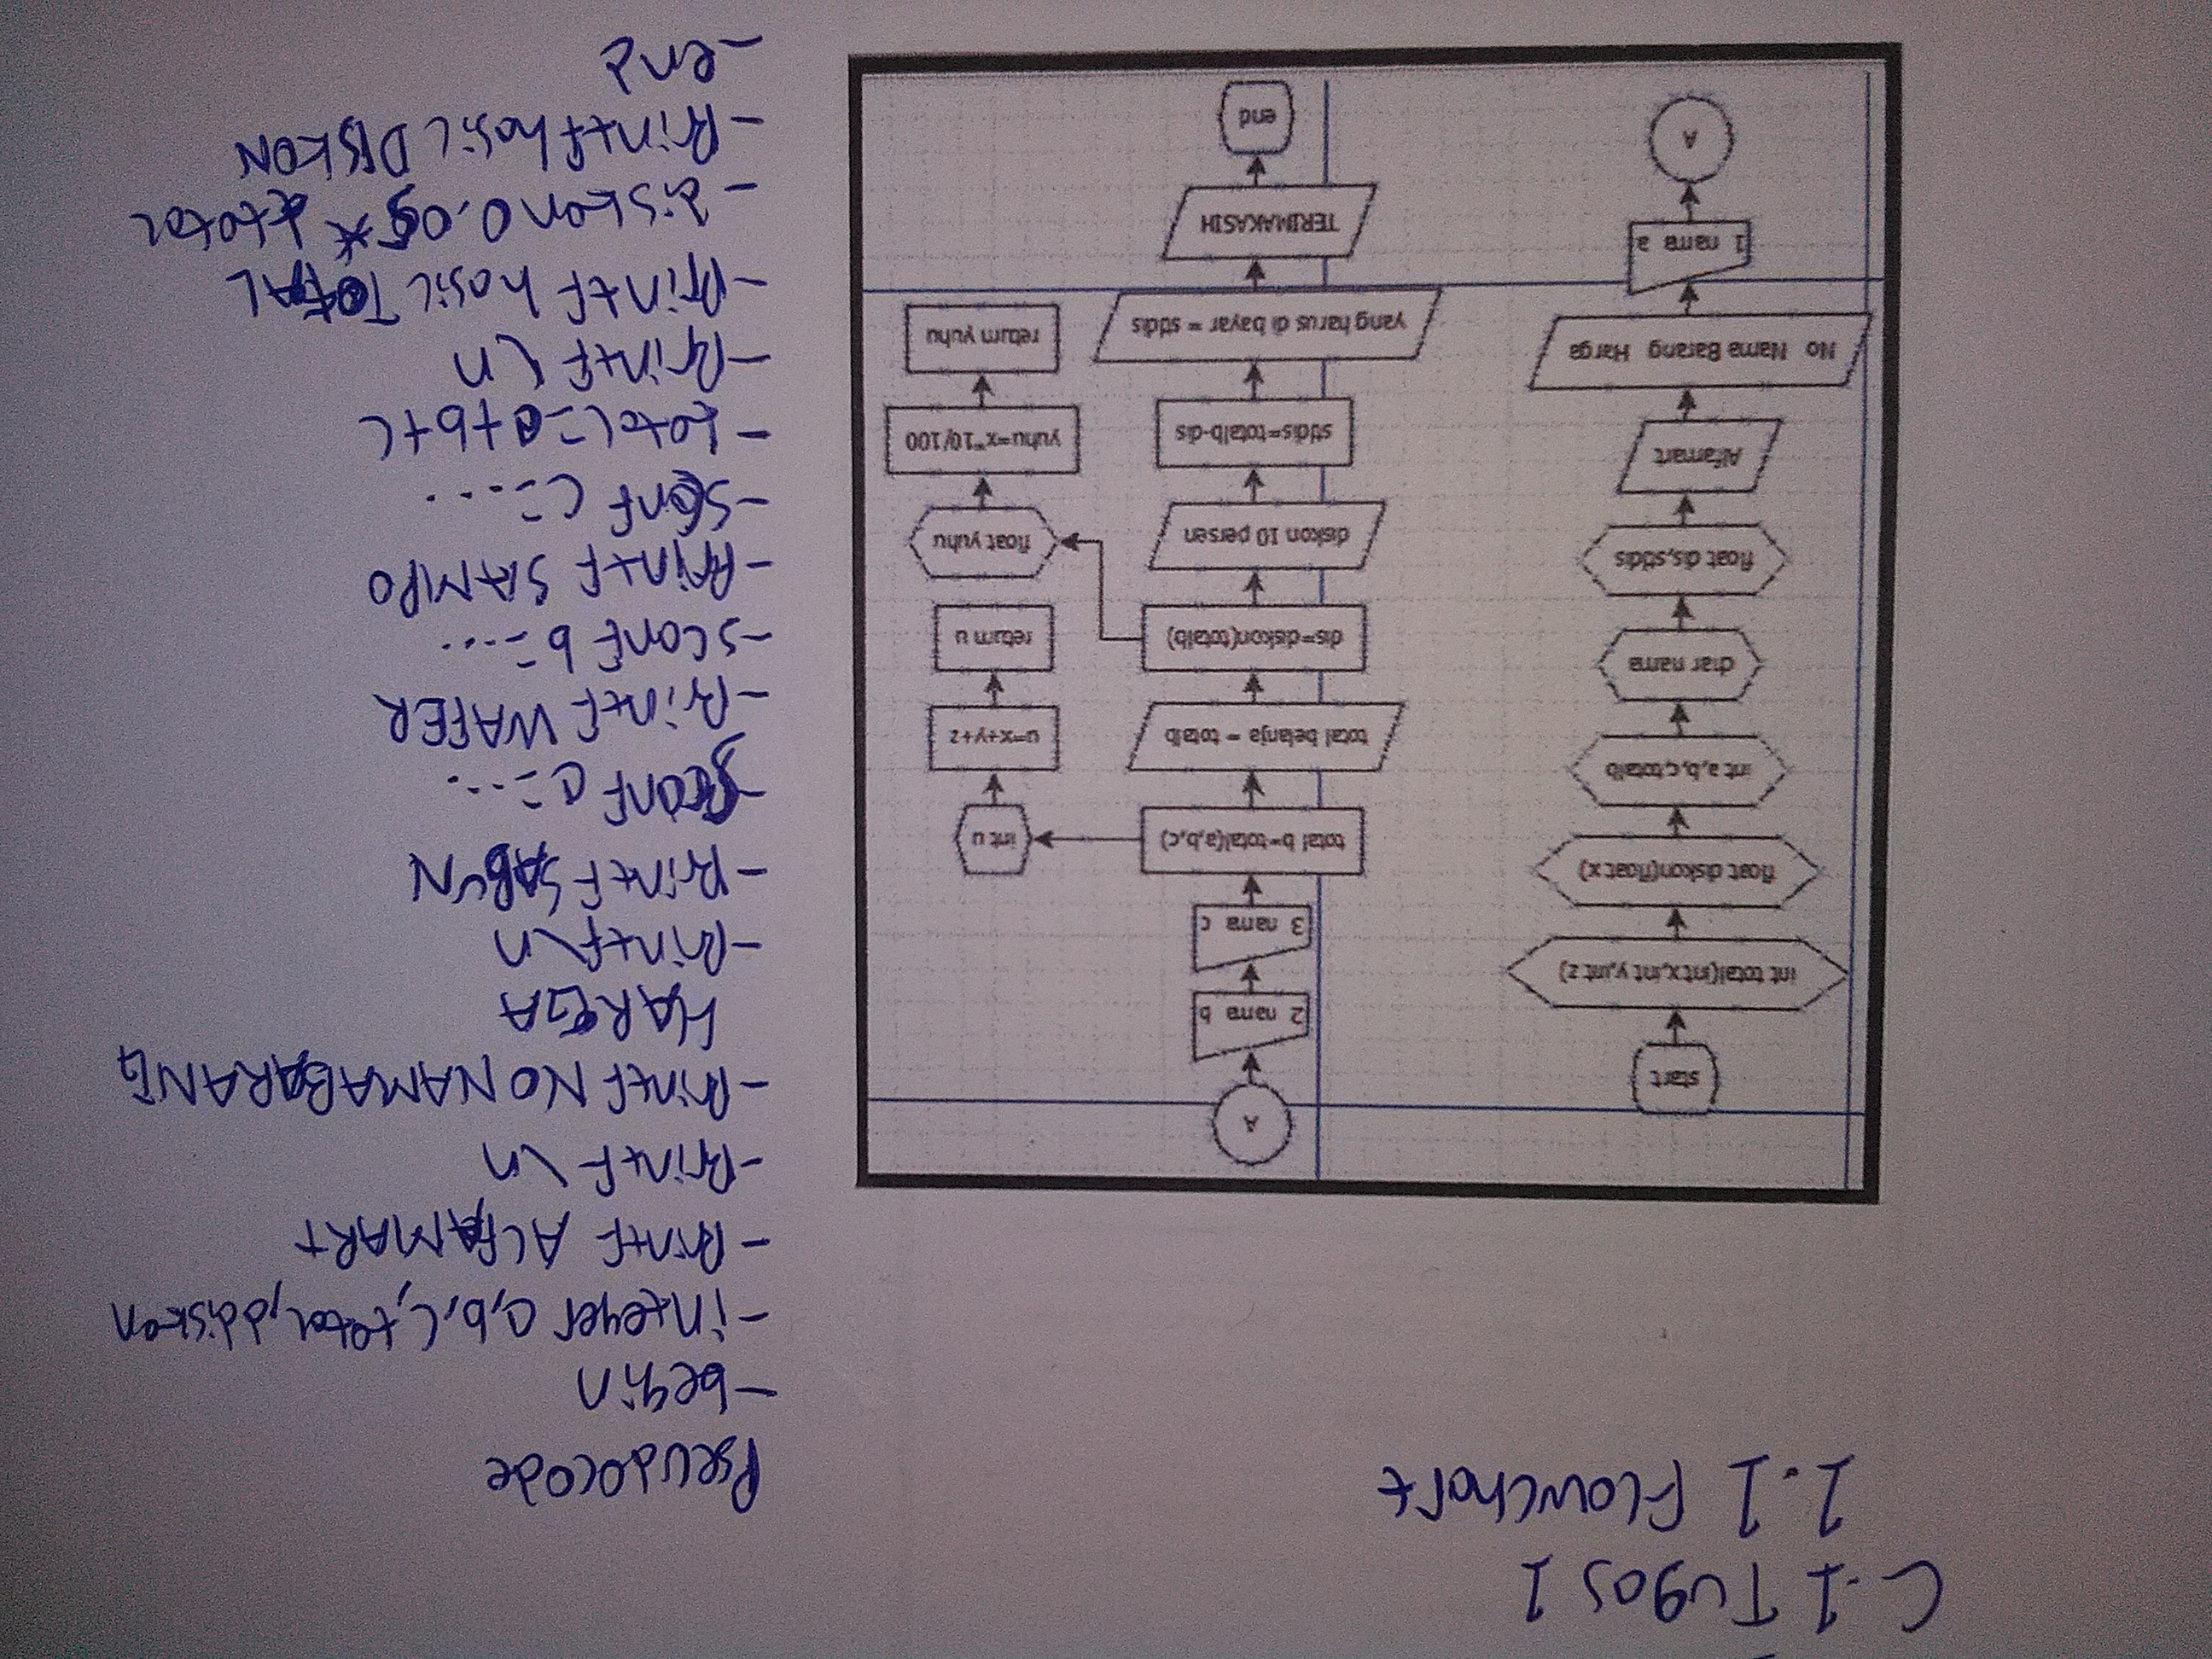 C.1 Tugas 1
1.1 Flowchart
start
int total(int x,int y,int z)
float diskon(float x)
int a,b,c,totalb
char nama
float dis,stdis
Alfamart
No Nama Barang Harga
1 nama a
A
A
2 nama b
3 nama c
total b=total(a,b,c)
total belanja = totalb
dis=diskon(totalb)
diskon 10 persen
stdis=totalb-dis
yang harus di bayar = stdis
TERIMAKASIH
end
int u
u=x+y+z
return u
float yuhu
yuhu=x*10/100
return yuhu
Pseudocode
- begin
- integer a,b,c,total,ddiskon
- Printf ALFAMART
- Printf \n
- Printf NO NAMA BARANG
HARGA
- Printf \n
- Printf SABUN
- Scanf a=...
- Printf WAFER
- Scanf b=...
- Printf SAMPO
- Scanf c=....
- total=a+b+c
- Printf \n
- Printf hasil TOTAL
- diskon 0.05* total
- Printf hasil DISKON
- end